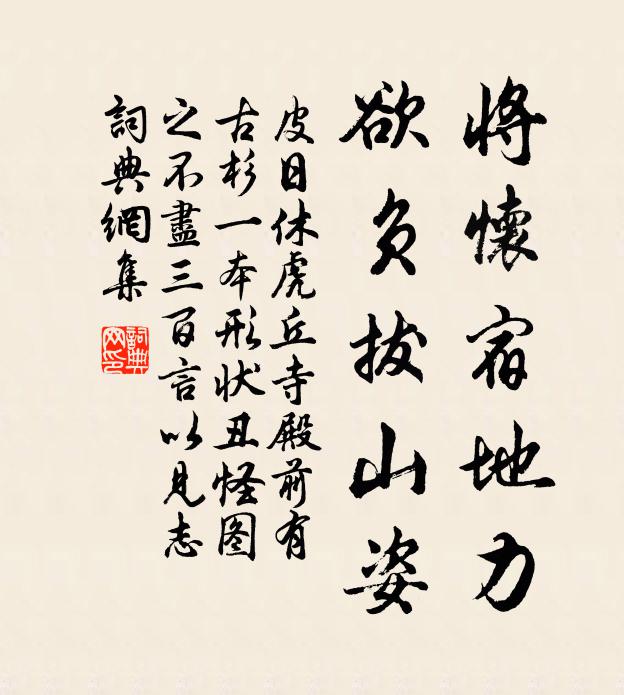 將懷宿地力
欲負拔山姿
皮日休虎丘寺殿前有
古杉一本形状丑怪图
之不盡三百言以見志
詞典網集
詞典
网印